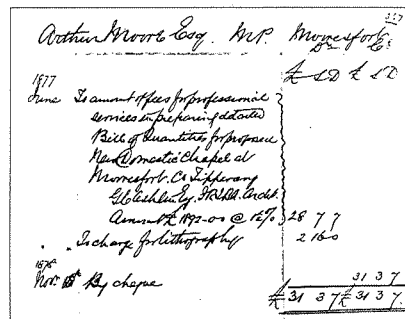 Arthur Moore Esq. M.P. Mooresfort
Dr. Cr.
£ S D £ S D
1877
June To amount of fees for professional
services in preparing detailed
Bill of Quantities for proposed
New Domestic Chapel at
Mooresfort. Co Tipperary
G C Ashlin Esq. F.R.I.B.A. Archt.
Amount £ 1892-0-0 @ 1½% 28 7 7
" " To charge for lithography 2 16 0
1878
Novr. By cheque 31 3 7
£ 31 3 7 £ 31 3 7